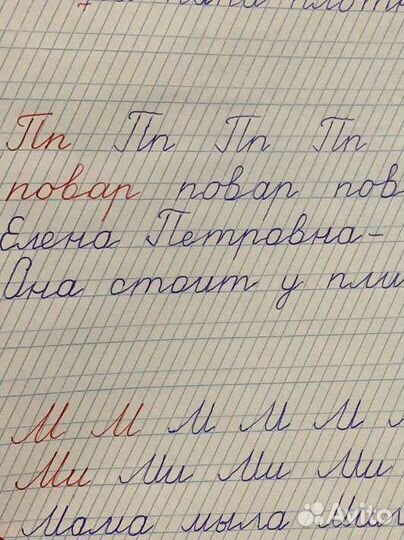 Пп Пп Пп Пп
повар повар пов
Елена Петровна-
Она стоит у пли
М М М М М
Ми Ми Ми Ми
Мама мыла Мил
Avito